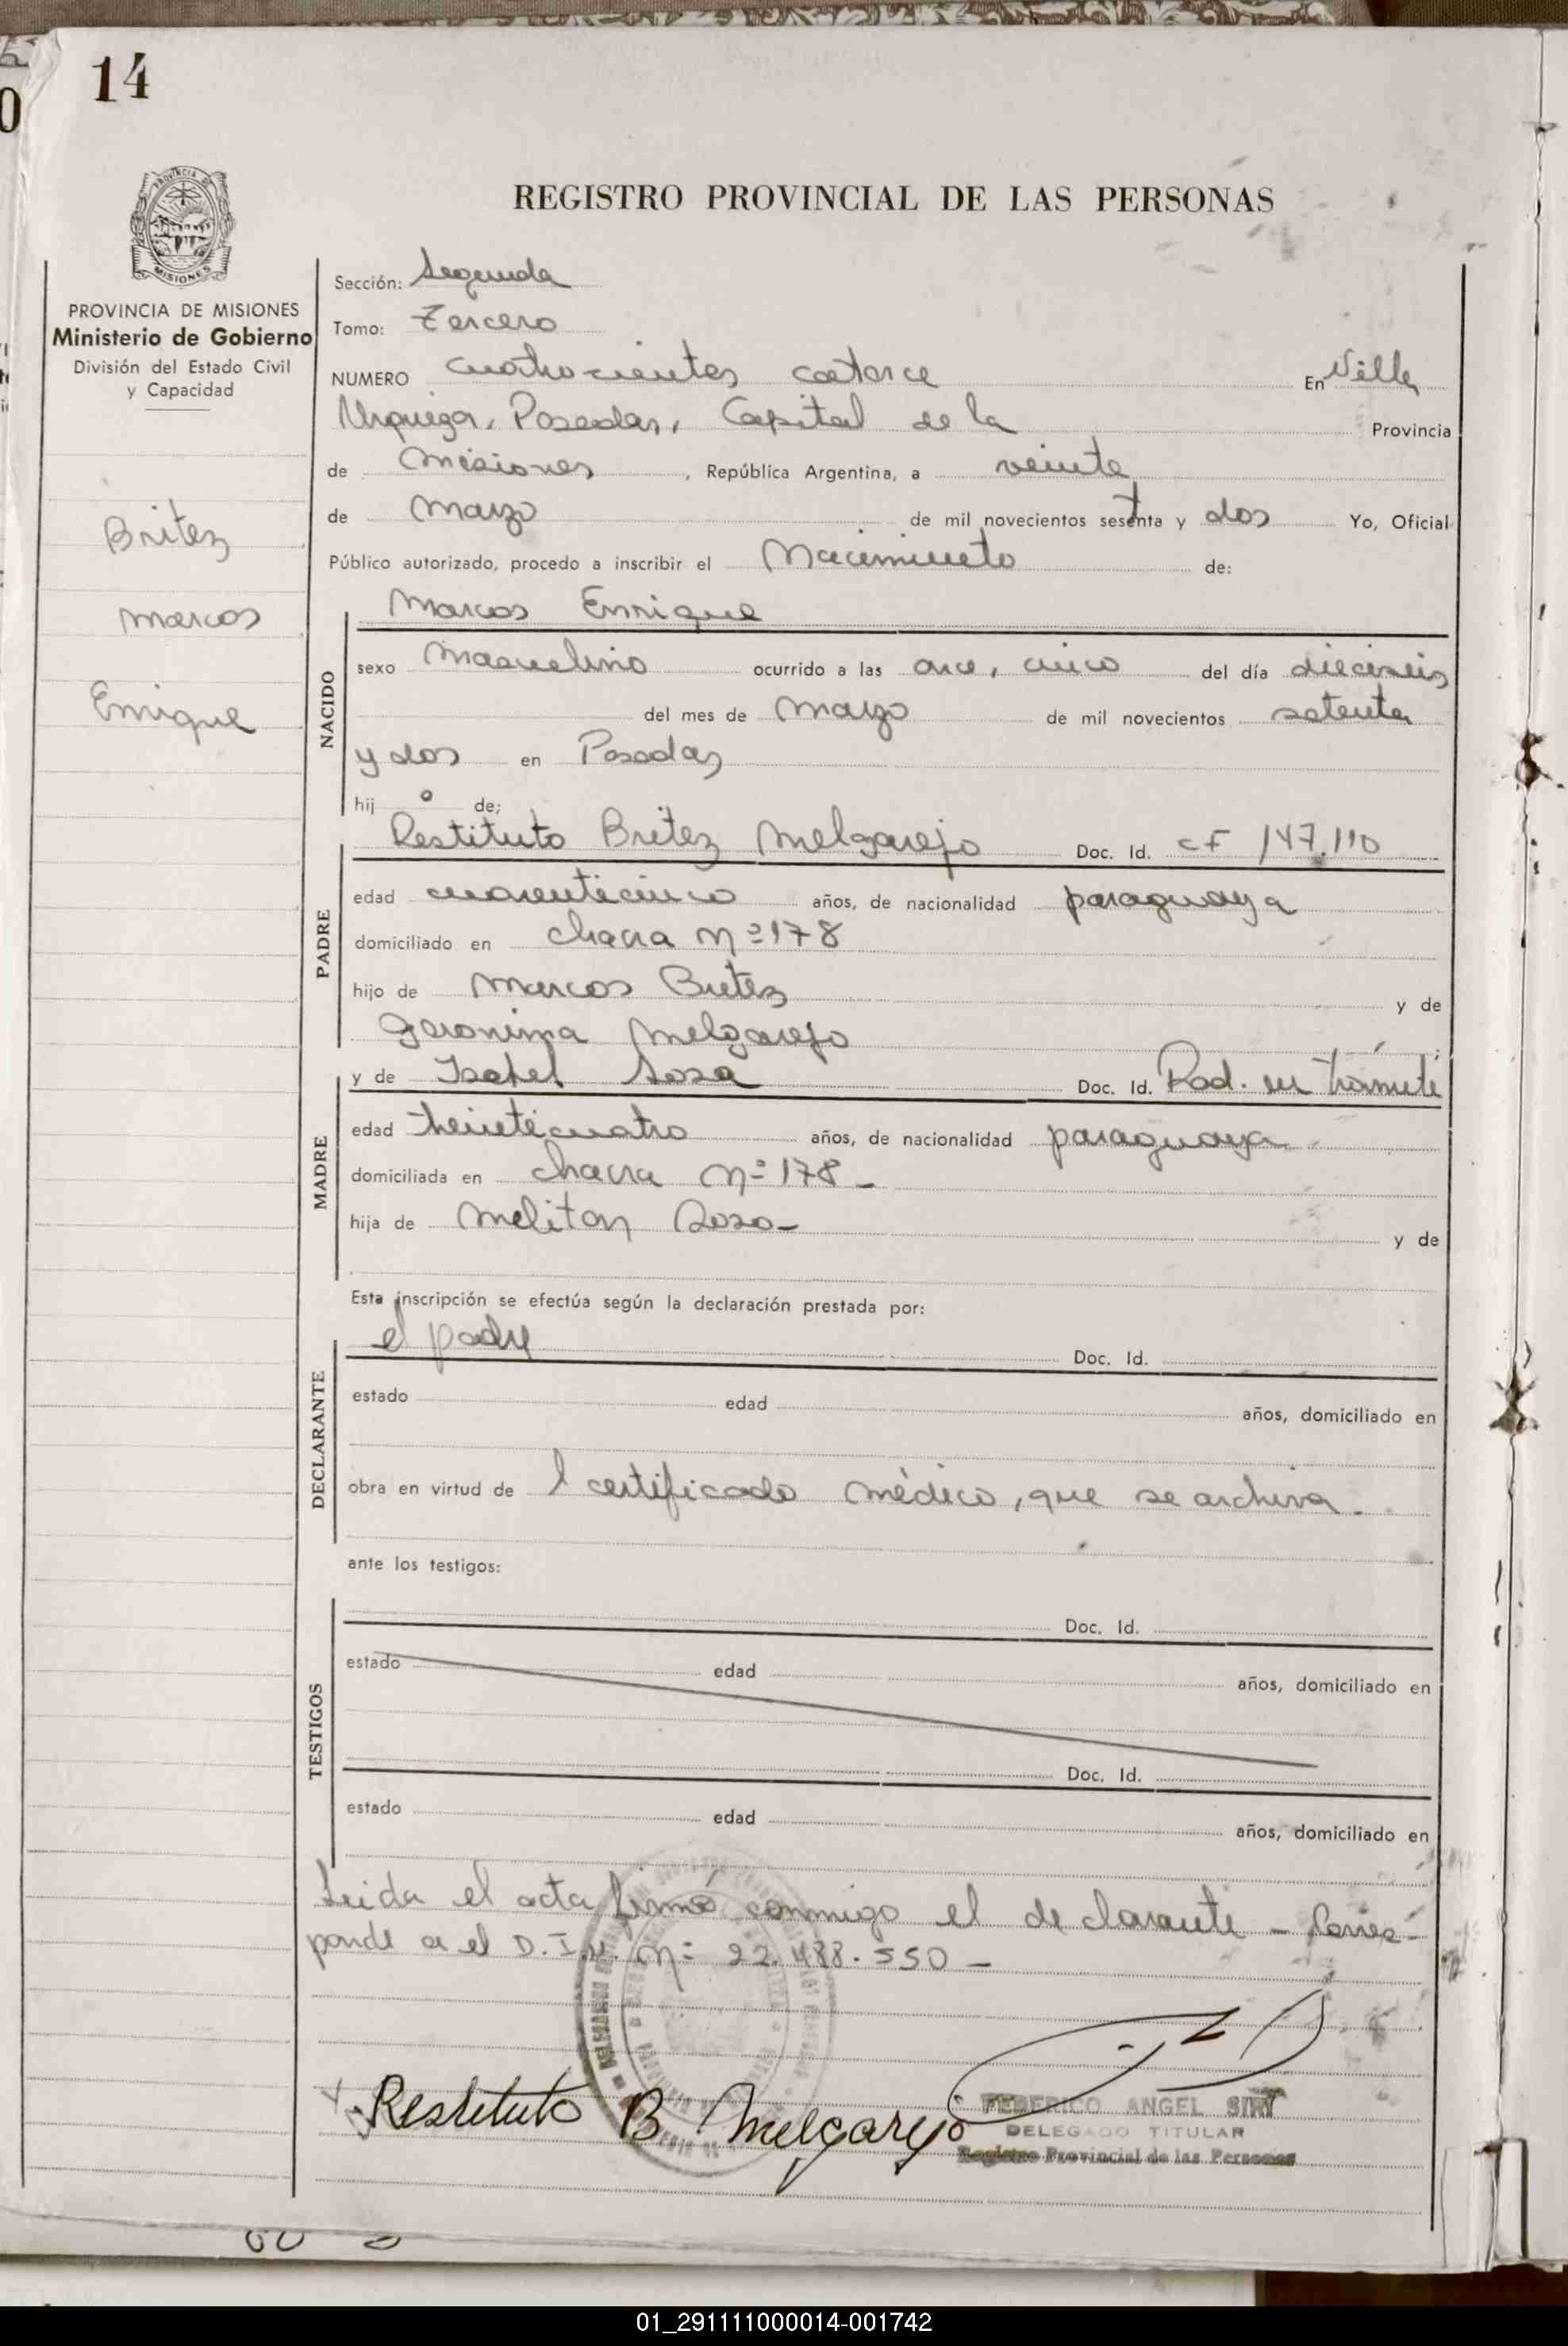 14
REGISTRO PROVINCIAL DE LAS PERSONAS
MISIONES
PROVINCIA DE MISIONES
Ministerio de Gobierno
División del Estado Civil
y Capacidad
Britez
Marcos
Enrique
Sección: Segunda
Tomo: Tercero
NUMERO cuatrocientos catorce En Villa
Urquiza, Posadas, Capital de la Provincia
de Misiones, República Argentina, a veinte
de Marzo de mil novecientos setenta y dos Yo, Oficial
Público autorizado, procedo a inscribir el Nacimiento de:
NACIDO
Marcos Enrique
sexo Masculino ocurrido a las once, cinco del día dieciseis
del mes de Marzo de mil novecientos setenta
y dos en Posadas
hij o de;
PADRE
Restituto Britez Melgarejo Doc. Id. CF 147.110
edad cuarenticinco años, de nacionalidad paraguaya
domiciliado en chacra Nº 178
hijo de Marcos Britez y de
Geronima Melgarejo
MADRE
y de Isabel Sosa Doc. Id. Rad. en trámite
edad treinticuatro años, de nacionalidad paraguaya
domiciliada en chacra Nº 178 -
hija de Meliton Sosa - y de
Esta inscripción se efectúa según la declaración prestada por:
DECLARANTE
el padre Doc. Id.
estado edad años, domiciliado en
obra en virtud de l certificado médico, que se archiva -
ante los testigos:
TESTIGOS
Doc. Id.
estado edad años, domiciliado en
Doc. Id.
estado edad años, domiciliado en
Leida el acta firmó conmigo el declarante - Corres-
ponde a el D.I.N. Nº 22.488.550 -
Restituto B Melgarejo
FEDERICO ANGEL
DELEGADO TITULAR
Registro Provincial de las Personas
01_291111000014-001742